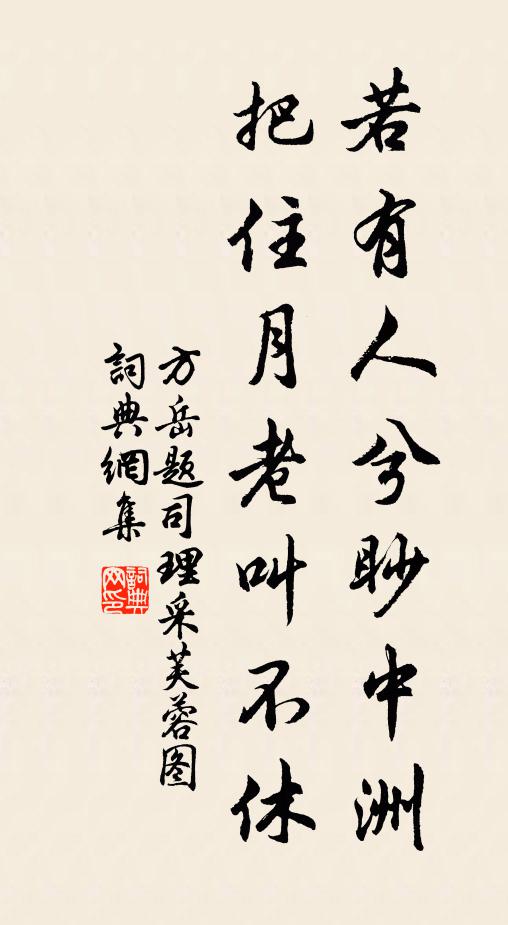 若有人兮眇中洲
把住月老叫不休
方岳题司理采芙蓉图
詞典網集
詞典網印